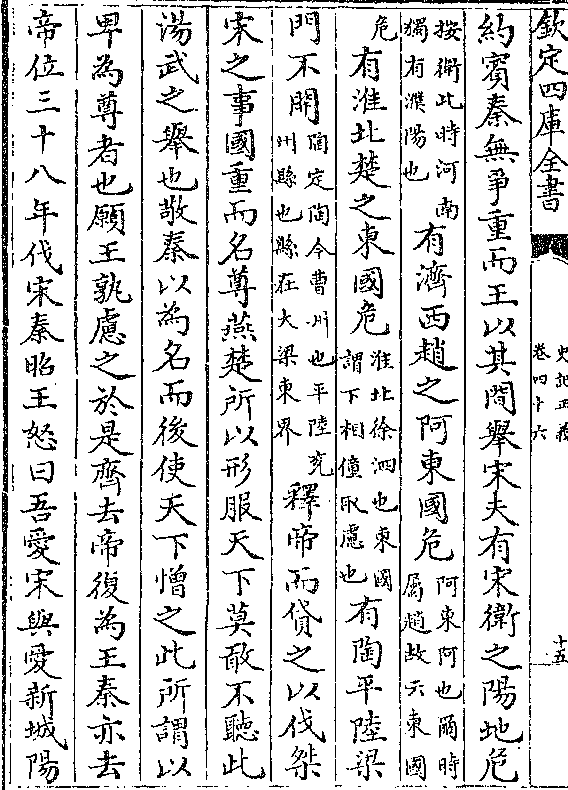 欽定四庫全書
史記正義
卷四十六
十五
約賓秦無爭重而王以其間舉宋夫有宋衛之陽地危
按衛此時河南
獨有濮陽也
有濟西趙之阿東國危
阿東阿也爾時
屬趙故云東國
危
有淮北楚之東國危
淮北徐泗也東國
謂下相僮取慮也
有陶平陸梁
門不開
陶定陶今曹州也平陸兖
州縣也縣在大梁東界
釋帝而貸之以伐桀
宋之事國重而名尊燕楚所以形服天下莫敢不聽此
湯武之舉也敬秦以為名而後使天下憎之此所謂以
卑為尊者也願王孰慮之於是齊去帝復為王秦亦去
帝位三十八年伐宋秦昭王怒曰吾愛宋與愛新城陽